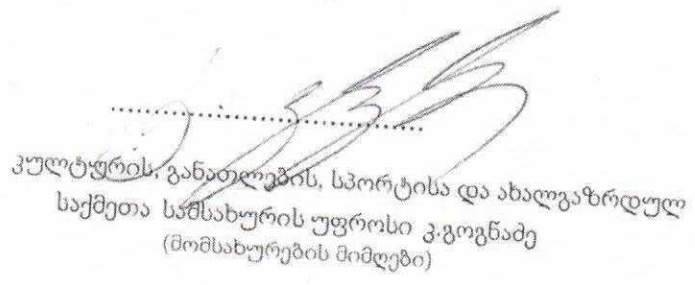 კულტურის, განათლების, სპორტისა და ახალგაზრდულ
საქმეთა სამსახურის უფროსი კ.გოგნაძე
(მომსახურების მიმღები)